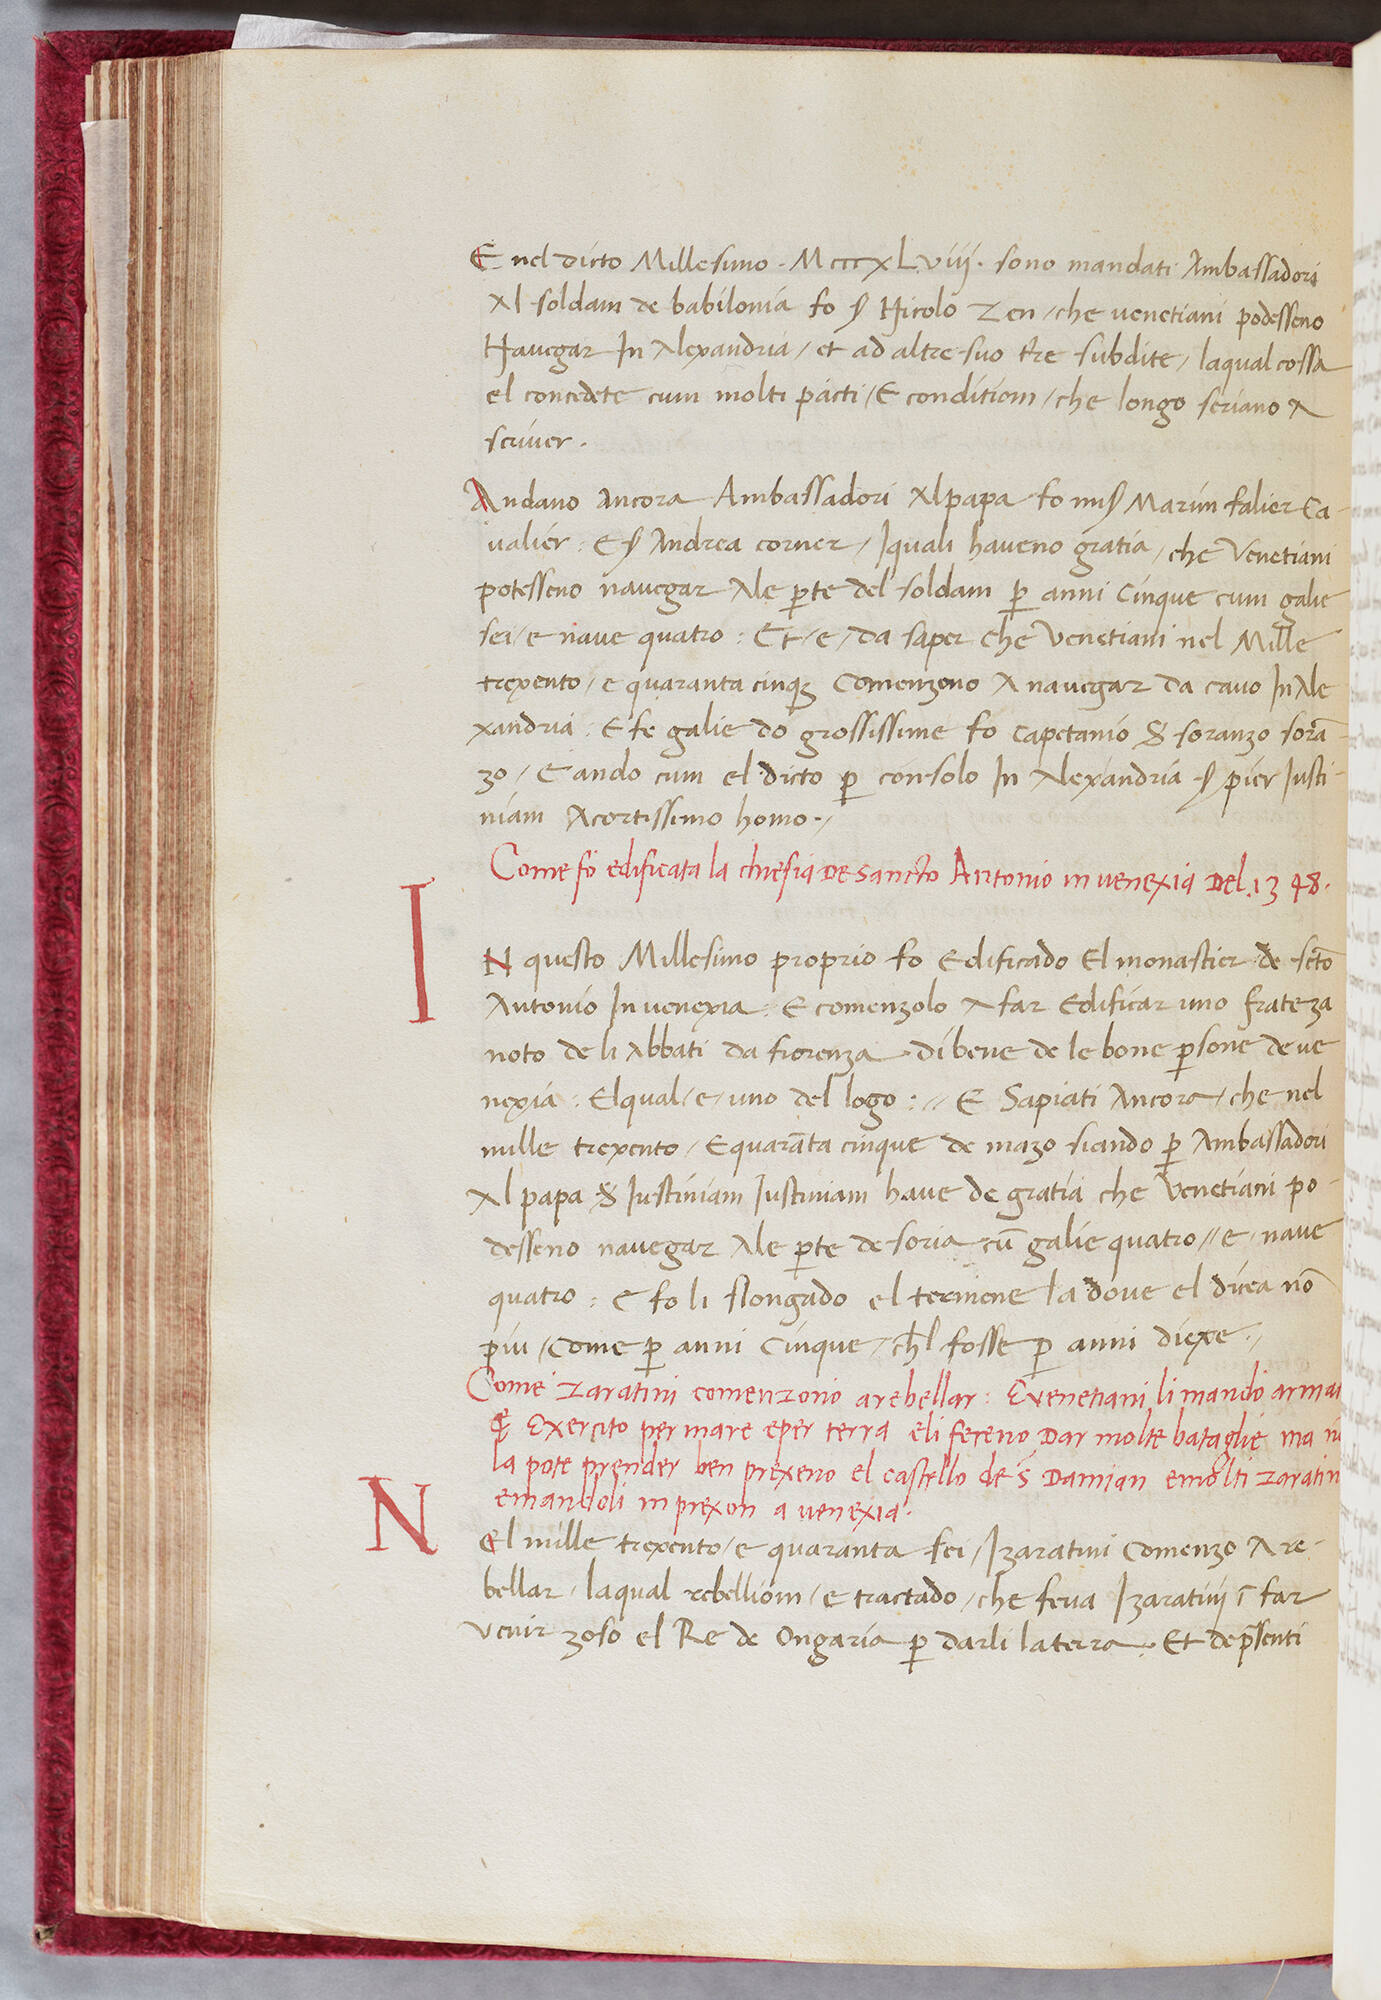 E nel dicto Millesimo . McccxLviij . sono mandati Ambassadori
Al soldam de babilonia fo ß Nicolo Zen / che venetiani podesseno
Navegar In Alexandria / et ad altre suo t̅re subdite / laqual cossa
el concedete cum molti pacti / E conditiom / che longo seriano A
scriver .
Andano Ancora Ambassadori Al papa fo miß Marin falier Ca-
valier : E ß Andrea corner / Iquali haveno gratia / che Venetiani
potesseno navegar Ale ꝑte del soldam ꝑ anni Cinque cum galie
sei / e nave quatro : Et / e / da saper che Venetiani nel Mille
trexento / e quaranta cinqꝫ Comenzono A navegar da cavo In Ale
xandria : E fe galie do grossissime fo Capetanio ß soranzo sora̅-
zo / E ando cum el dicto ꝑ consolo In Alexandria ß pier Iusti-
niam Acortissimo homo . /
Come fo edificata la chiesia De Sancto Antonio in venexia Del . 1348 .
IN questo Millesimo proprio fo Edificado El monastier de scto̅
Antonio In venexia : E comenzolo A far Edificar uno frate za
noto de li Abbati da fiorenza di beve de le bone ꝑsone de ve
nexia : Elqual / e / uno del logo : // E Sapiati Ancora / che nel
mille trexento / E quara̅nta cinque de mazo siando ꝑ Ambassadori
Al papa ß Iustiniam Iustiniam have de gratia che Venetiani po-
desseno navegar Ale ꝑte de soria cu̅ galie quatro // e nave
quatro : E fo li slongado el termene la dove el dicea no̅
piu / Come ꝑ anni Cinque / ch̅l fosse ꝑ anni diexe . /
Come zaratini comenzono a rebellar : E venetiani li mando arma
ꝙ Exercito per mare e per terra e li feceno Dar molte bataglie ma
la pote prender ben prexeno el castello de s̅ Damian e molti zaratin
e mandoli in prexon a venexia .
NEl mille trexento / e quaranta sei / I zaratini Comenzo A re-
bellar / laqual rebelliom / e tractado / che feva I zaratini j̅ far
venir zoso el Re de Ongaria ꝑ darli la terra . Et de p̅senti